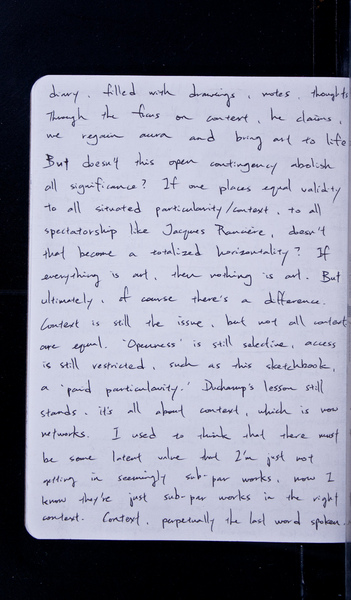 diary, filled with drawings, notes, thoughts
Through the focus on context, he claims,
we regain aura and bring art to life
But doesn't this open contingency abolish
all significance? If one places equal validity
to all situated particularity/context, to all
spectatorship like Jacques Rancière, doesn't
that become a totalized horizontality? If
everything is art, then nothing is art. But
ultimately, of course there's a difference.
Context is still the issue, but not all context
are equal. 'Openness' is still selective, access
is still restricted, such as this sketchbook,
a 'paid particularity.' Duchamp's lesson still
stands. it's all about context, which is now
networks. I used to think that there must
be some latent value that I'm just not
getting in seemingly sub-par works, now I
know they're just sub-par works in the right
context. Context, perpetually the last word spoken